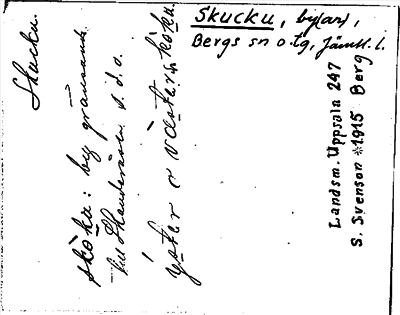 Skucku, by(ar),
Bergs sn o. tg, Jämtl. l.
Skucku.
skòku: by gränsande
till Skanderåsen s. d. o.
ý̀ster o västerskòku.
Landsm. Uppsala 247
S. Svenson *1915 Berg